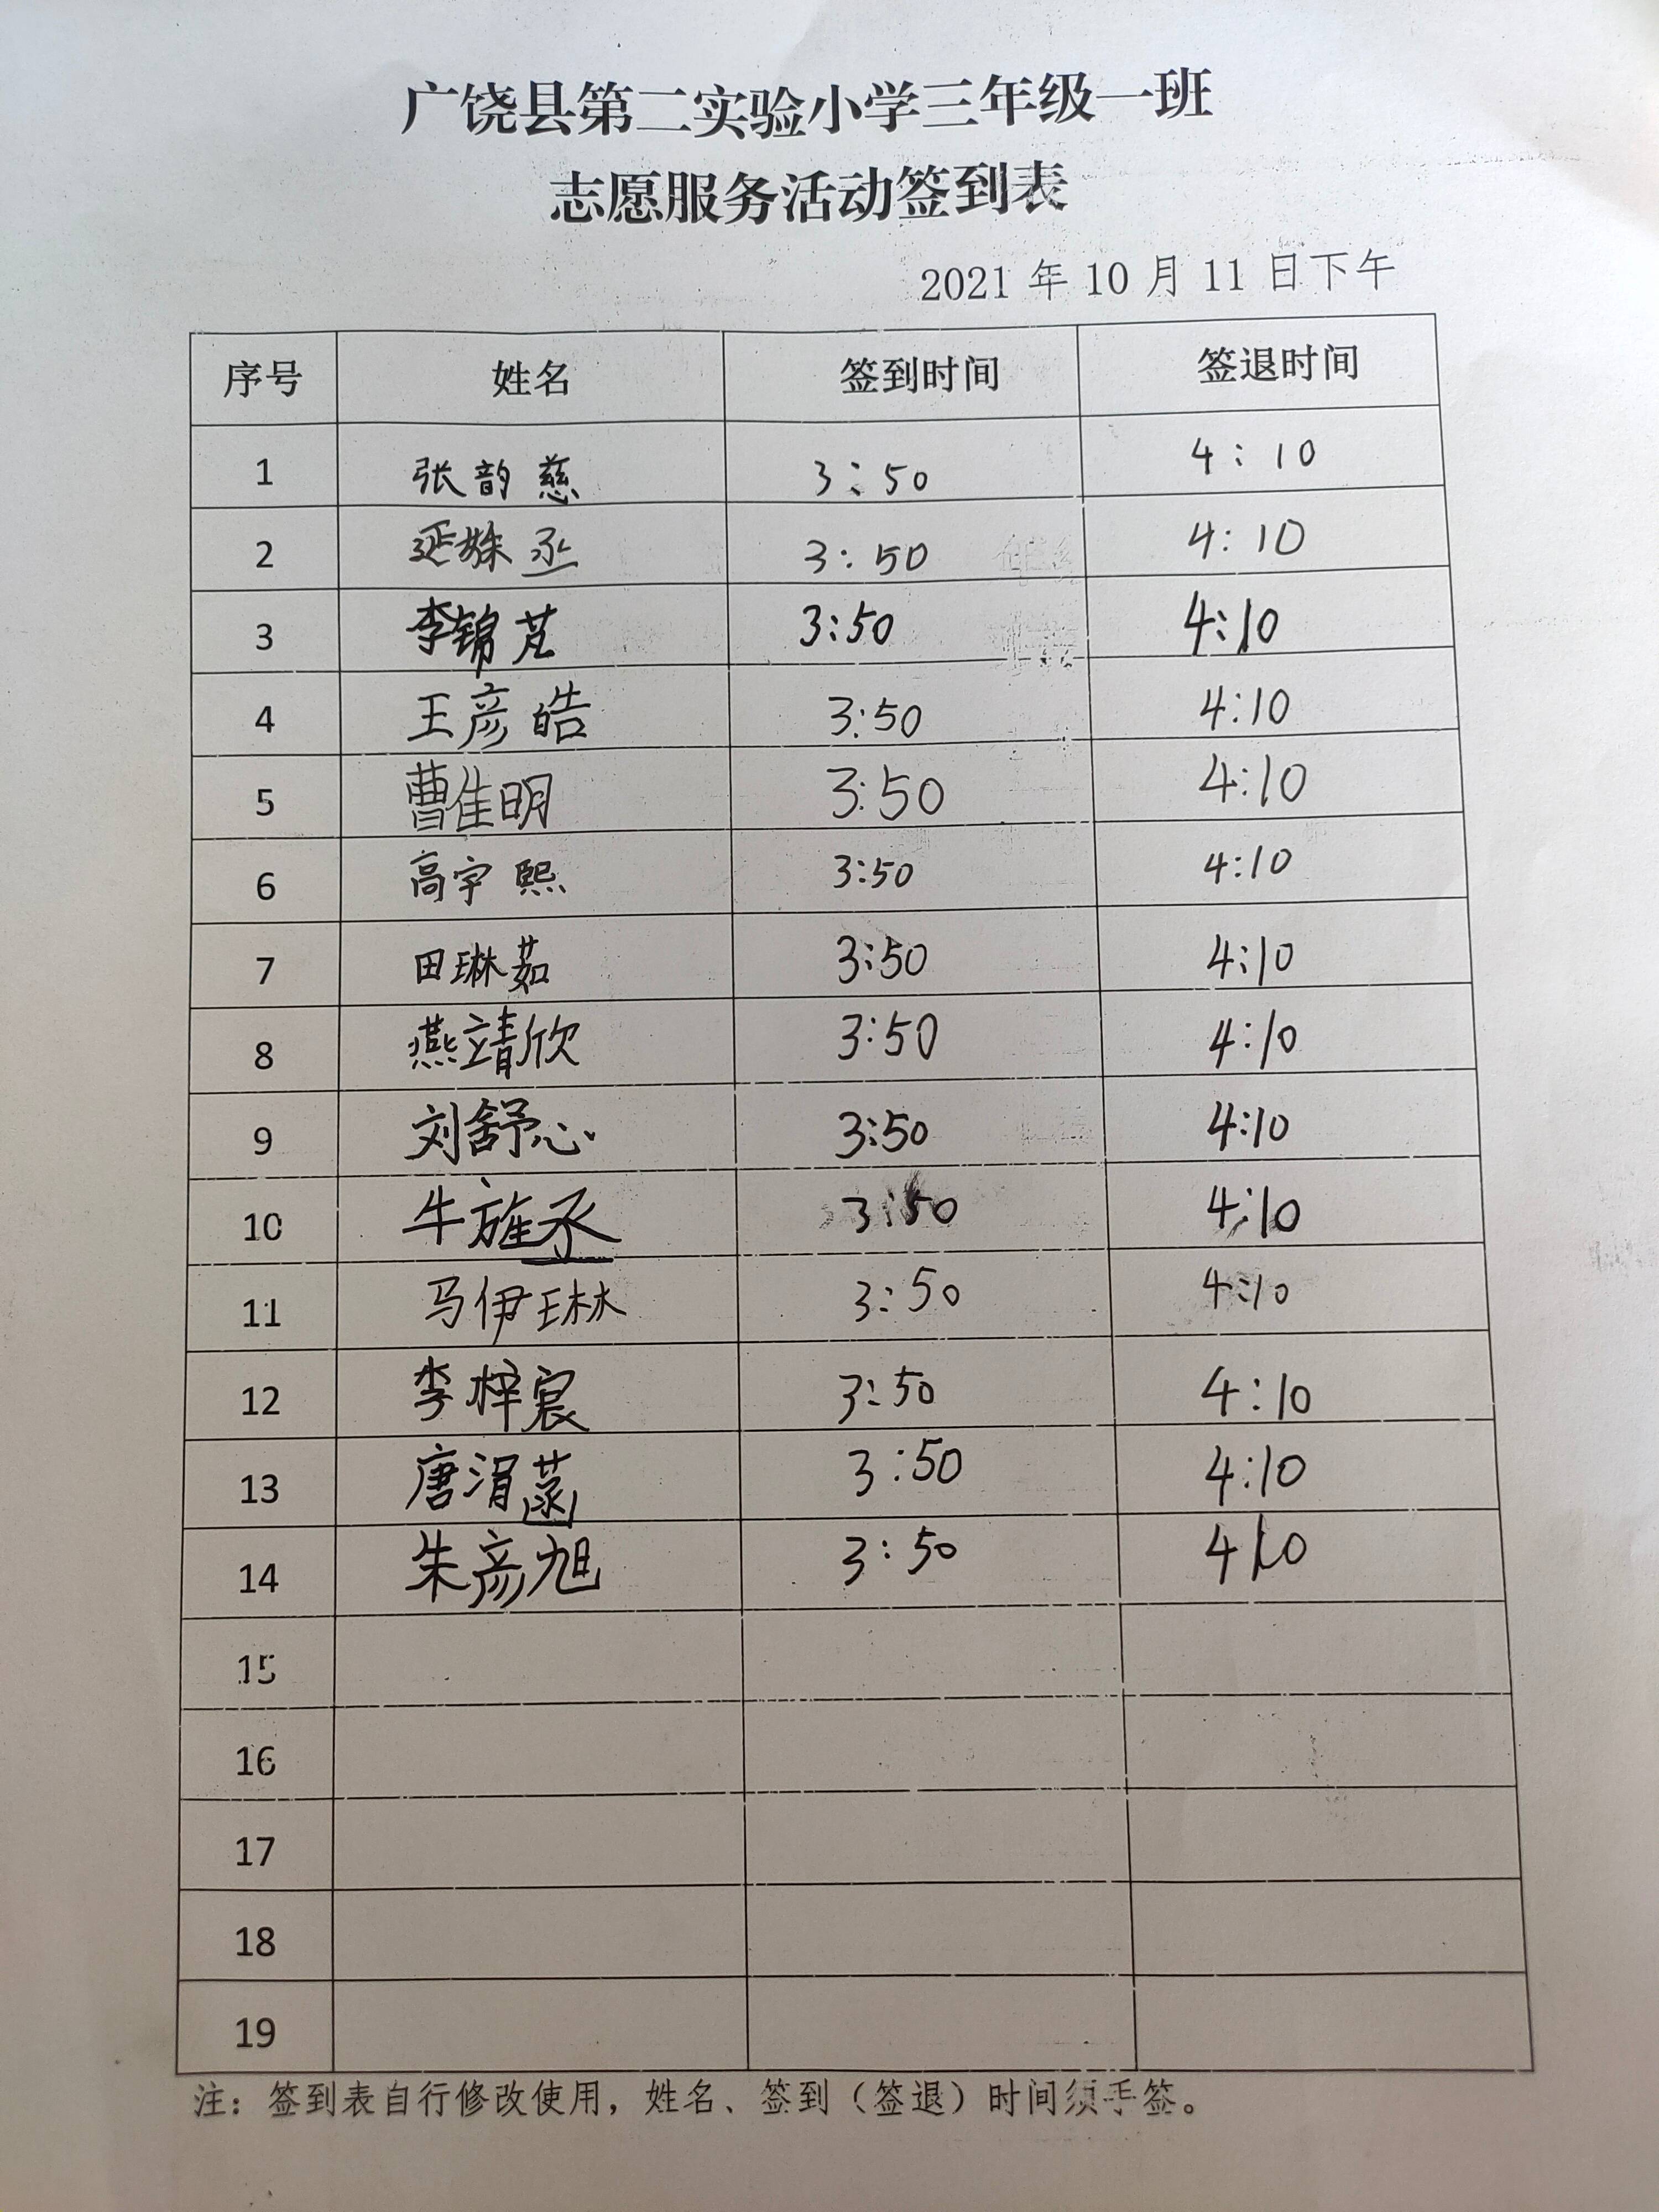 广饶县第二实验小学三年级一班
志愿服务活动签到表
2021年10月11日下午
序号 姓名 签到时间 签退时间
1 张韵慈 3:50 4:10
2 延姝丞 3:50 4:10
3 李锦芃 3:50 4:10
4 王彦皓 3:50 4:10
5 曹佳明 3:50 4:10
6 高宇熙 3:50 4:10
7 田琳茹 3:50 4:10
8 燕靖欣 3:50 4:10
9 刘舒心 3:50 4:10
10 牛旌丞 3:50 4:10
11 马伊琳 3:50 4:10
12 李梓宸 3:50 4:10
13 唐涓菡 3:50 4:10
14 朱彦旭 3:50 4:10
15
16
17
18
19
注：签到表自行修改使用，姓名、签到（签退）时间须手签。